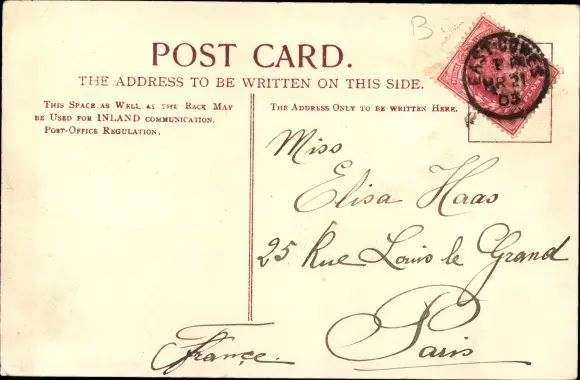 B
POST CARD.
THE ADDRESS TO BE WRITTEN ON THIS SIDE.
THIS SPACE AS WELL AS THE BACK MAY
BE USED FOR INLAND COMMUNICATION.
POST-OFFICE REGULATION.
THE ADDRESS ONLY TO BE WRITTEN HERE.
EAST-COWES
MR 21
Miss
Elisa Haas
25 Rue Louis le Grand
Paris
France.